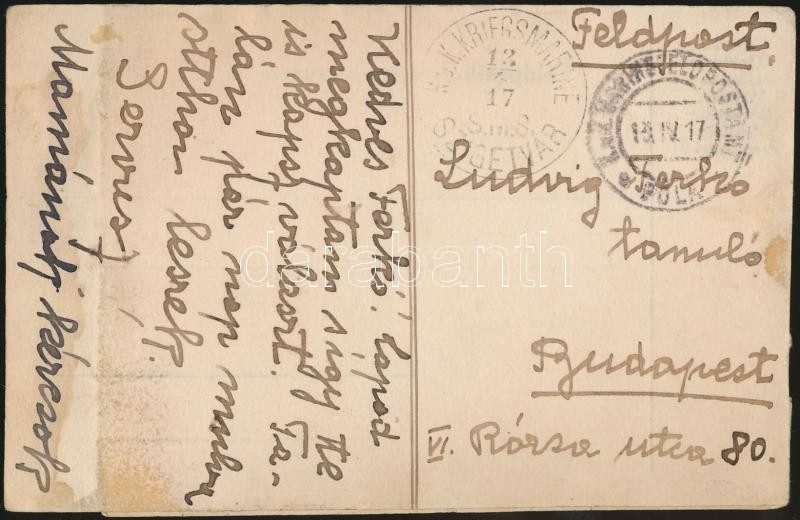 Feldpost.
K.u.K. KRIEGSMARINE
13
17
S.M.S.
SZIGETVÁR
K.u.K. MARINEFELDPOSTAMT
13.IV.17
POLA
Ludvig Ferkó
tanuló
Budapest
VI. Rózsa utca 80.
Kedves Ferkó! Lapod
megkaptam s így Te
is kapsz választ. Ta-
lán pár nap mulva
otthon leszek.
Servus
Mamának kézcsók
darabanth